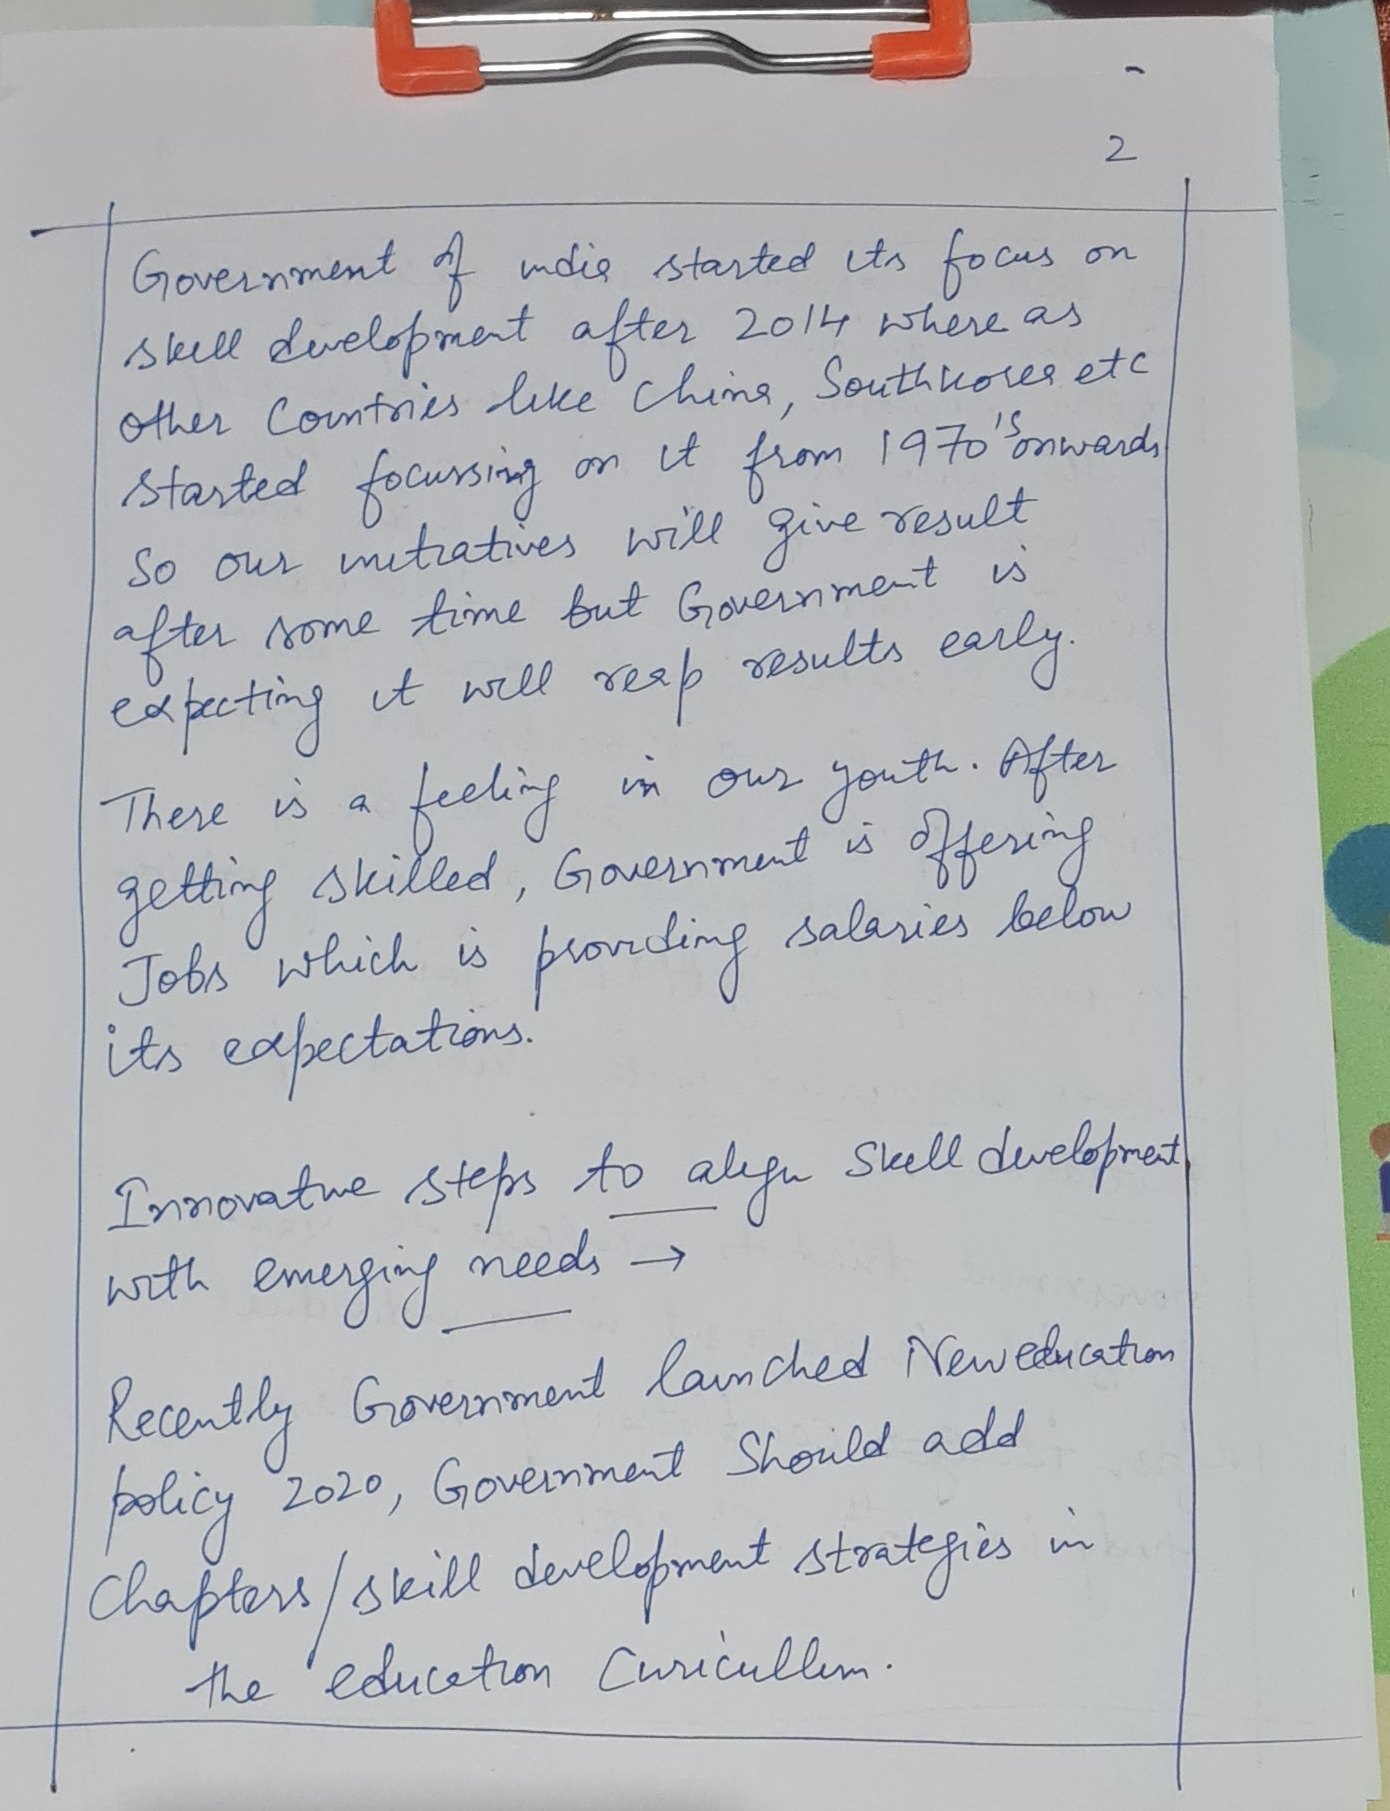 2
Government of india started its focus on
skill development after 2014 where as
other Countries like China, Southkorea etc
started focussing on it from 1970's onwards
So our initiatives will give result
after some time but Government is
expecting it will reap results early.
There is a feeling in our youth. After
getting skilled, Government is offering
Jobs which is providing salaries below
its expectations.
Innovative steps to align Skill development
with emerging needs →
Recently Government launched New education
policy 2020, Government Should add
Chapters/skill development strategies in
the education Curicullum.